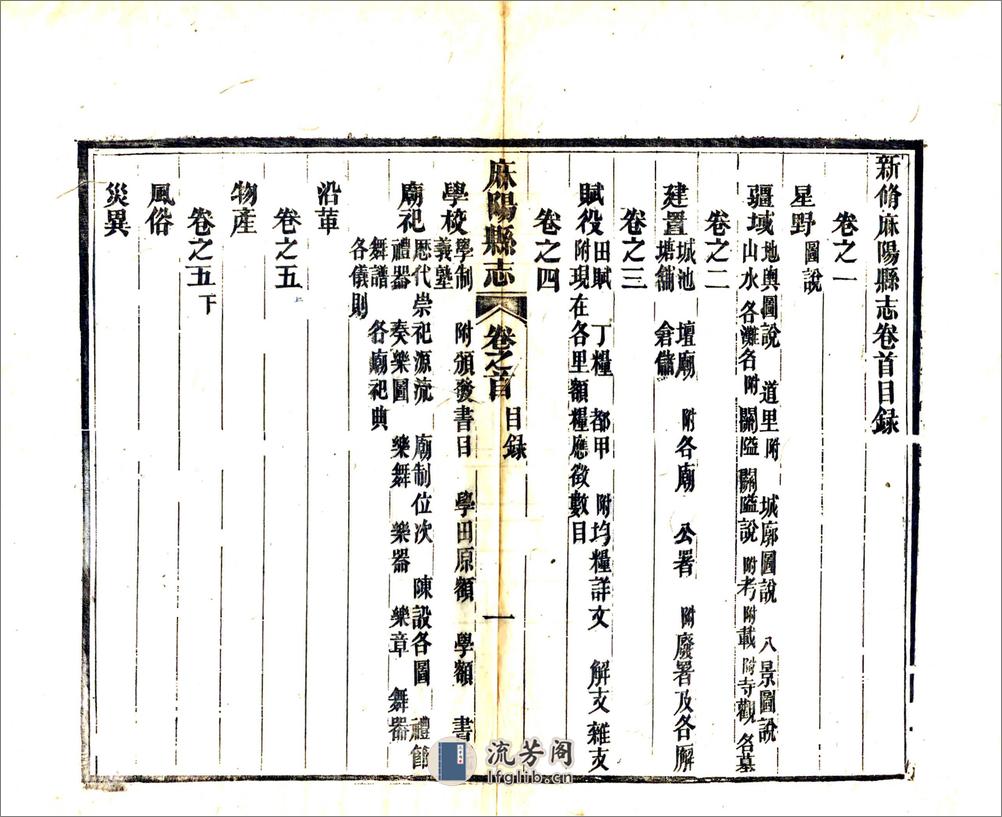 新脩麻陽縣志卷首目錄
卷之一
星野 圖說
疆域 地輿圖說 道里附 城廓圖說 八景圖說
山水 各灘名附 關隘 關隘說 附考 附載 附寺觀 名墓
卷之二
建置 城池 壇廟 附各廟 公署 附廢署及各廨
塘舖 倉儲
卷之三
賦役 田賦 丁糧 都甲 附均糧詳文 解支 雜支
附現在各里額糧應徵數目
卷之四
麻陽縣志 卷之首 目錄 一
學校 學制 附頒發書目 學田原額 學額 書
義塾
廟祀 歷代崇祀源流 廟制位次 陳設各圖 禮節
禮器 奏樂圖 樂舞 樂器 樂章 舞器
舞譜 各廟祀典
各儀則
沿革
卷之五上
物產
卷之五下
風俗
災異
流芳阁
lfglib.cn